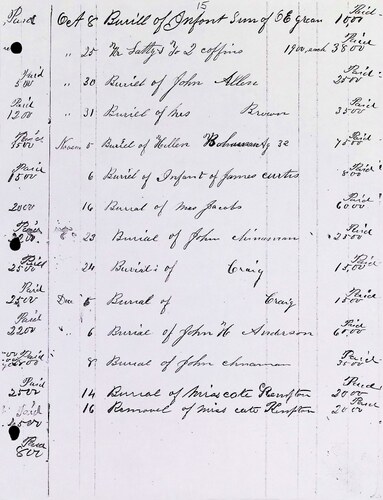 15
Paid Oct 8 Buriel of Infant Sun of S E green Paid 1000
" 25 Mr Sattys To 2 coffins 1900 each Paid 3800
Paid 500 " 30 Buriel of John Allen Paid 2500
Paid 1200 " 31 Buriel of Mrs Brown Paid 3500
Paid 1500 5 Buriel of Hellen ag 32 Paid 7500
Paid 1500 6 Buriel of Infant of James curtis Paid 800
2000 16 Burial of Mrs Jacobs Paid 6000
Paid 23 Burial of John chinaman Paid 2500
Paid 2500 24 Burial of Craig Paid 1500
Paid 2500 Dec 5 Burial of Craig Paid
Paid 2200 " 6 Burial of John H Anderson Paid
Paid 8 Burial of John chinaman Paid
Paid 2500 14 Burial of Miss cate Kempton Paid 2000
Paid 2500 16 Removel of Miss cate Kempton Paid 2000
Paid 800